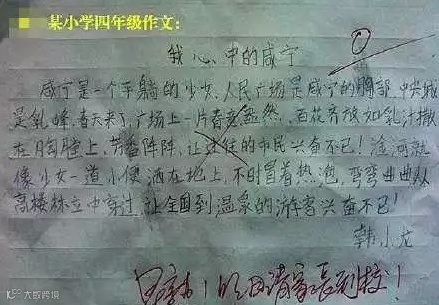 某小学四年级作文:
我心中的咸宁
咸宁是一个平躺的少女,人民广场是咸宁的胸部,中央城
是乳峰,春天来了,广场上一片春意盎然,百花齐放如乳汁撒
在胸膛上,芳香阵阵,让过往的市民兴奋不已!淦河就
像少女一道小便洒在地上,不时冒着热泡,弯弯曲曲从
高楼林立中穿过,让全国到温泉的游客兴奋不已!
韩小龙
!明日请家长到校!
大数跨境